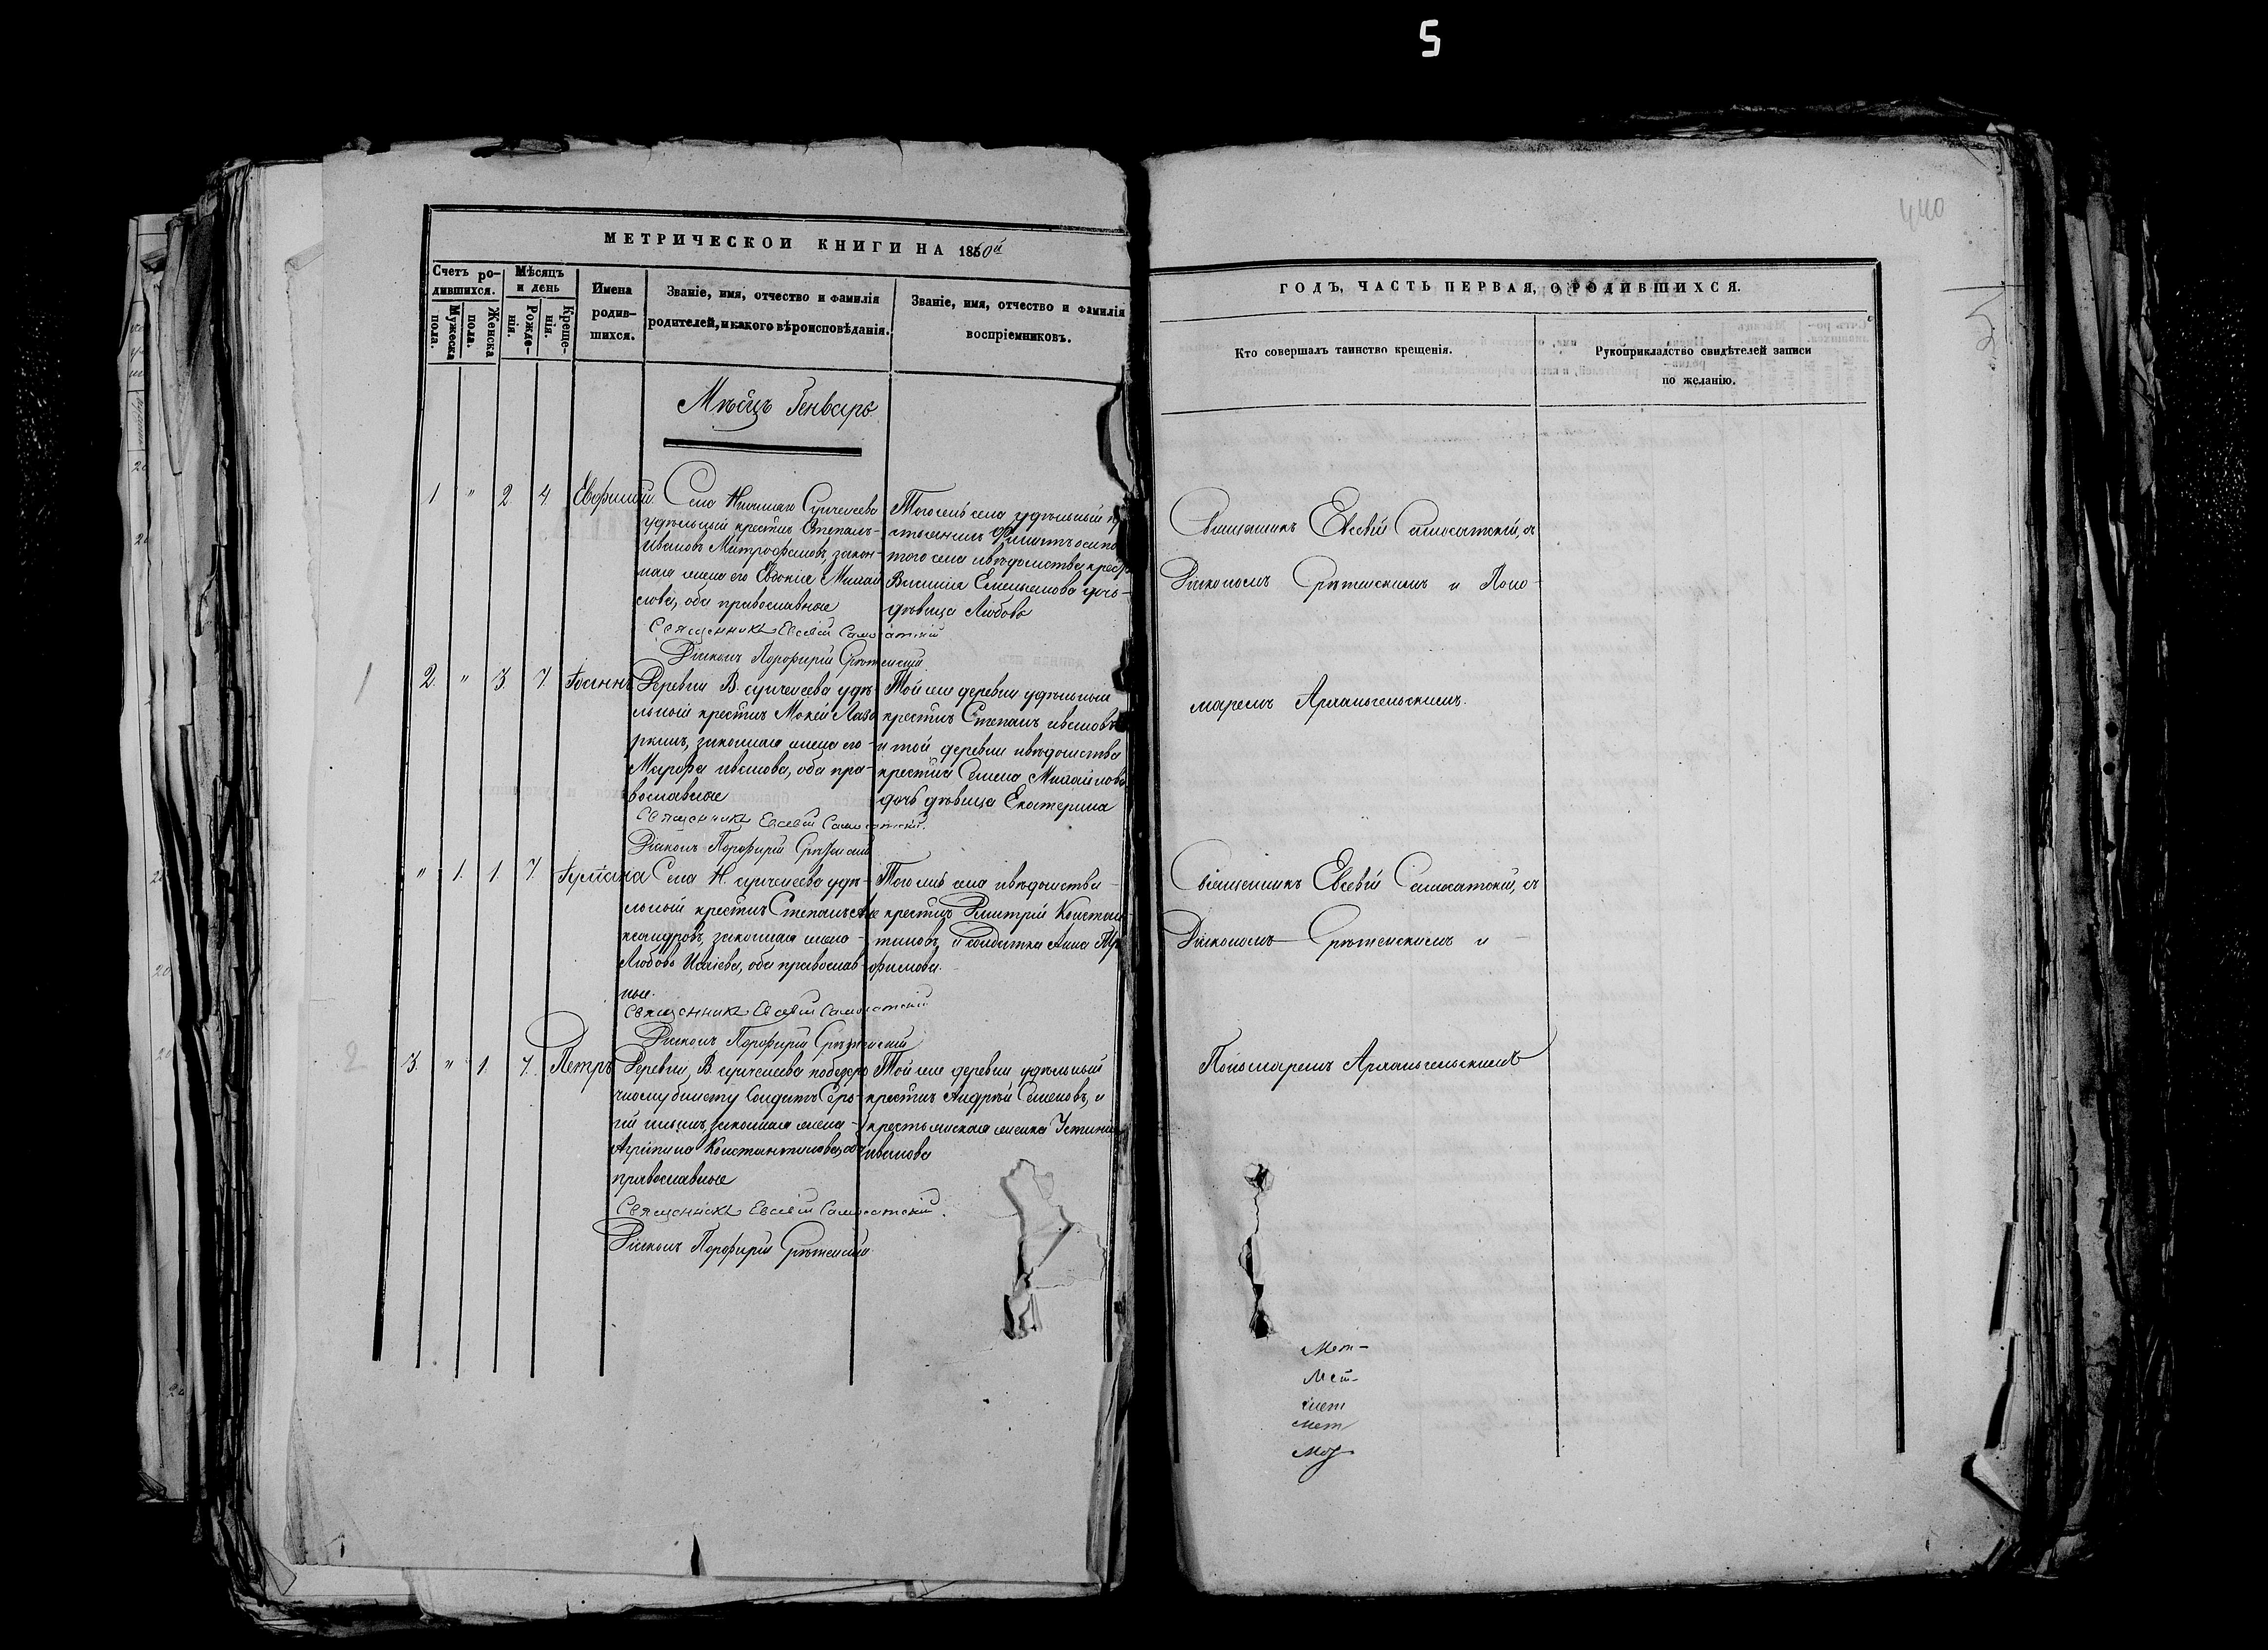 5
440
5
МЕТРИЧЕСКОЙ КНИГИ НА 1860й
Счетъ ро-
дившихся.
Мужеска
пола.
Женска
пола.
Мѣсяцъ
и день
Рожде-
нія.
Креще-
нія.
Имена
родив-
шихся.
Званіе, имя, отчество и фамилія
родителей, и какого вѣроисповѣданія.
Званіе, имя, отчество и фамилія
воспріемниковъ.
Мѣсяцъ Генварь
1 " 2 4 Евфимій.
Села Нижняго Сунчелеева
удѣльный крестнъ Степанъ
Ивановъ Митрофановъ, закон-
ная жена его Евдокія Михаи
лова, оба православные
Священникъ Евсевій Самосатскій
Діаконъ Порфирій Срѣтенскій
Тогожъ села удѣльный к
стьянинъ Филиппъ осипо
того села ивѣдомства крест
Василія Емельянова дочь
дѣвица Любовь
1
2. " 3. 7. Іоаннъ
Деревни В. сунчелеева удѣ-
льный крестнъ Мокей Лаза
ркинъ, законная жена его
Марфа иванова, оба пра-
вославные
Священникъ Евсевій Самосатскій.
Діаконъ Порфирій Срѣтенскій
Той же деревни удѣльный
крестнъ Степанъ ивановъ
и той деревни ивѣдомства
крестна Семена Михайлова
дочь дѣвица Екатерина
" 1. 1 7. Іуліана
Села Н. сунчелеева удѣ-
льный крестнъ Степанъ Але
ксандровъ, законная жена
Любовь Исаіева, оба православ
ные.
Священникъ Евсевій Самосатскій
Діаконъ Порфирій Срѣтенскій
Тогожъ села ивѣдомства
крестнъ Дмитрій Констан-
тиновъ, и солдатка Анна Тр
офимова.
2
3. " 1. 7. Петръ
Деревни В. сунчелеева побезсро
чному билету Солдатъ Сер-
гій ильинъ, законная жена
Агрипина Константинова, оба
православные
Священникъ Евсевій Самосатскій.
Діаконъ Порфирій Срѣтенскій.
Той же деревни удѣльный
крестнъ Андрей Семеновъ, и
крестьянская женка Устинья
иванова
ГОДЪ, ЧАСТЬ ПЕРВАЯ, О РОДИВШИХСЯ.
Кто совершалъ таинство крещенія.
Рукоприкладство свидѣтелей записи
по желанію.
Священникъ Евсевій Самосатскій, съ
Діакономъ Срѣтенскимъ и Поно-
маремъ Архангельскимъ.
Священникъ Евсевій Самосатскій, съ
Діакономъ Срѣтенскимъ и
Пономаремъ Архангельскимъ
Мет-
Мет-
мет
мет